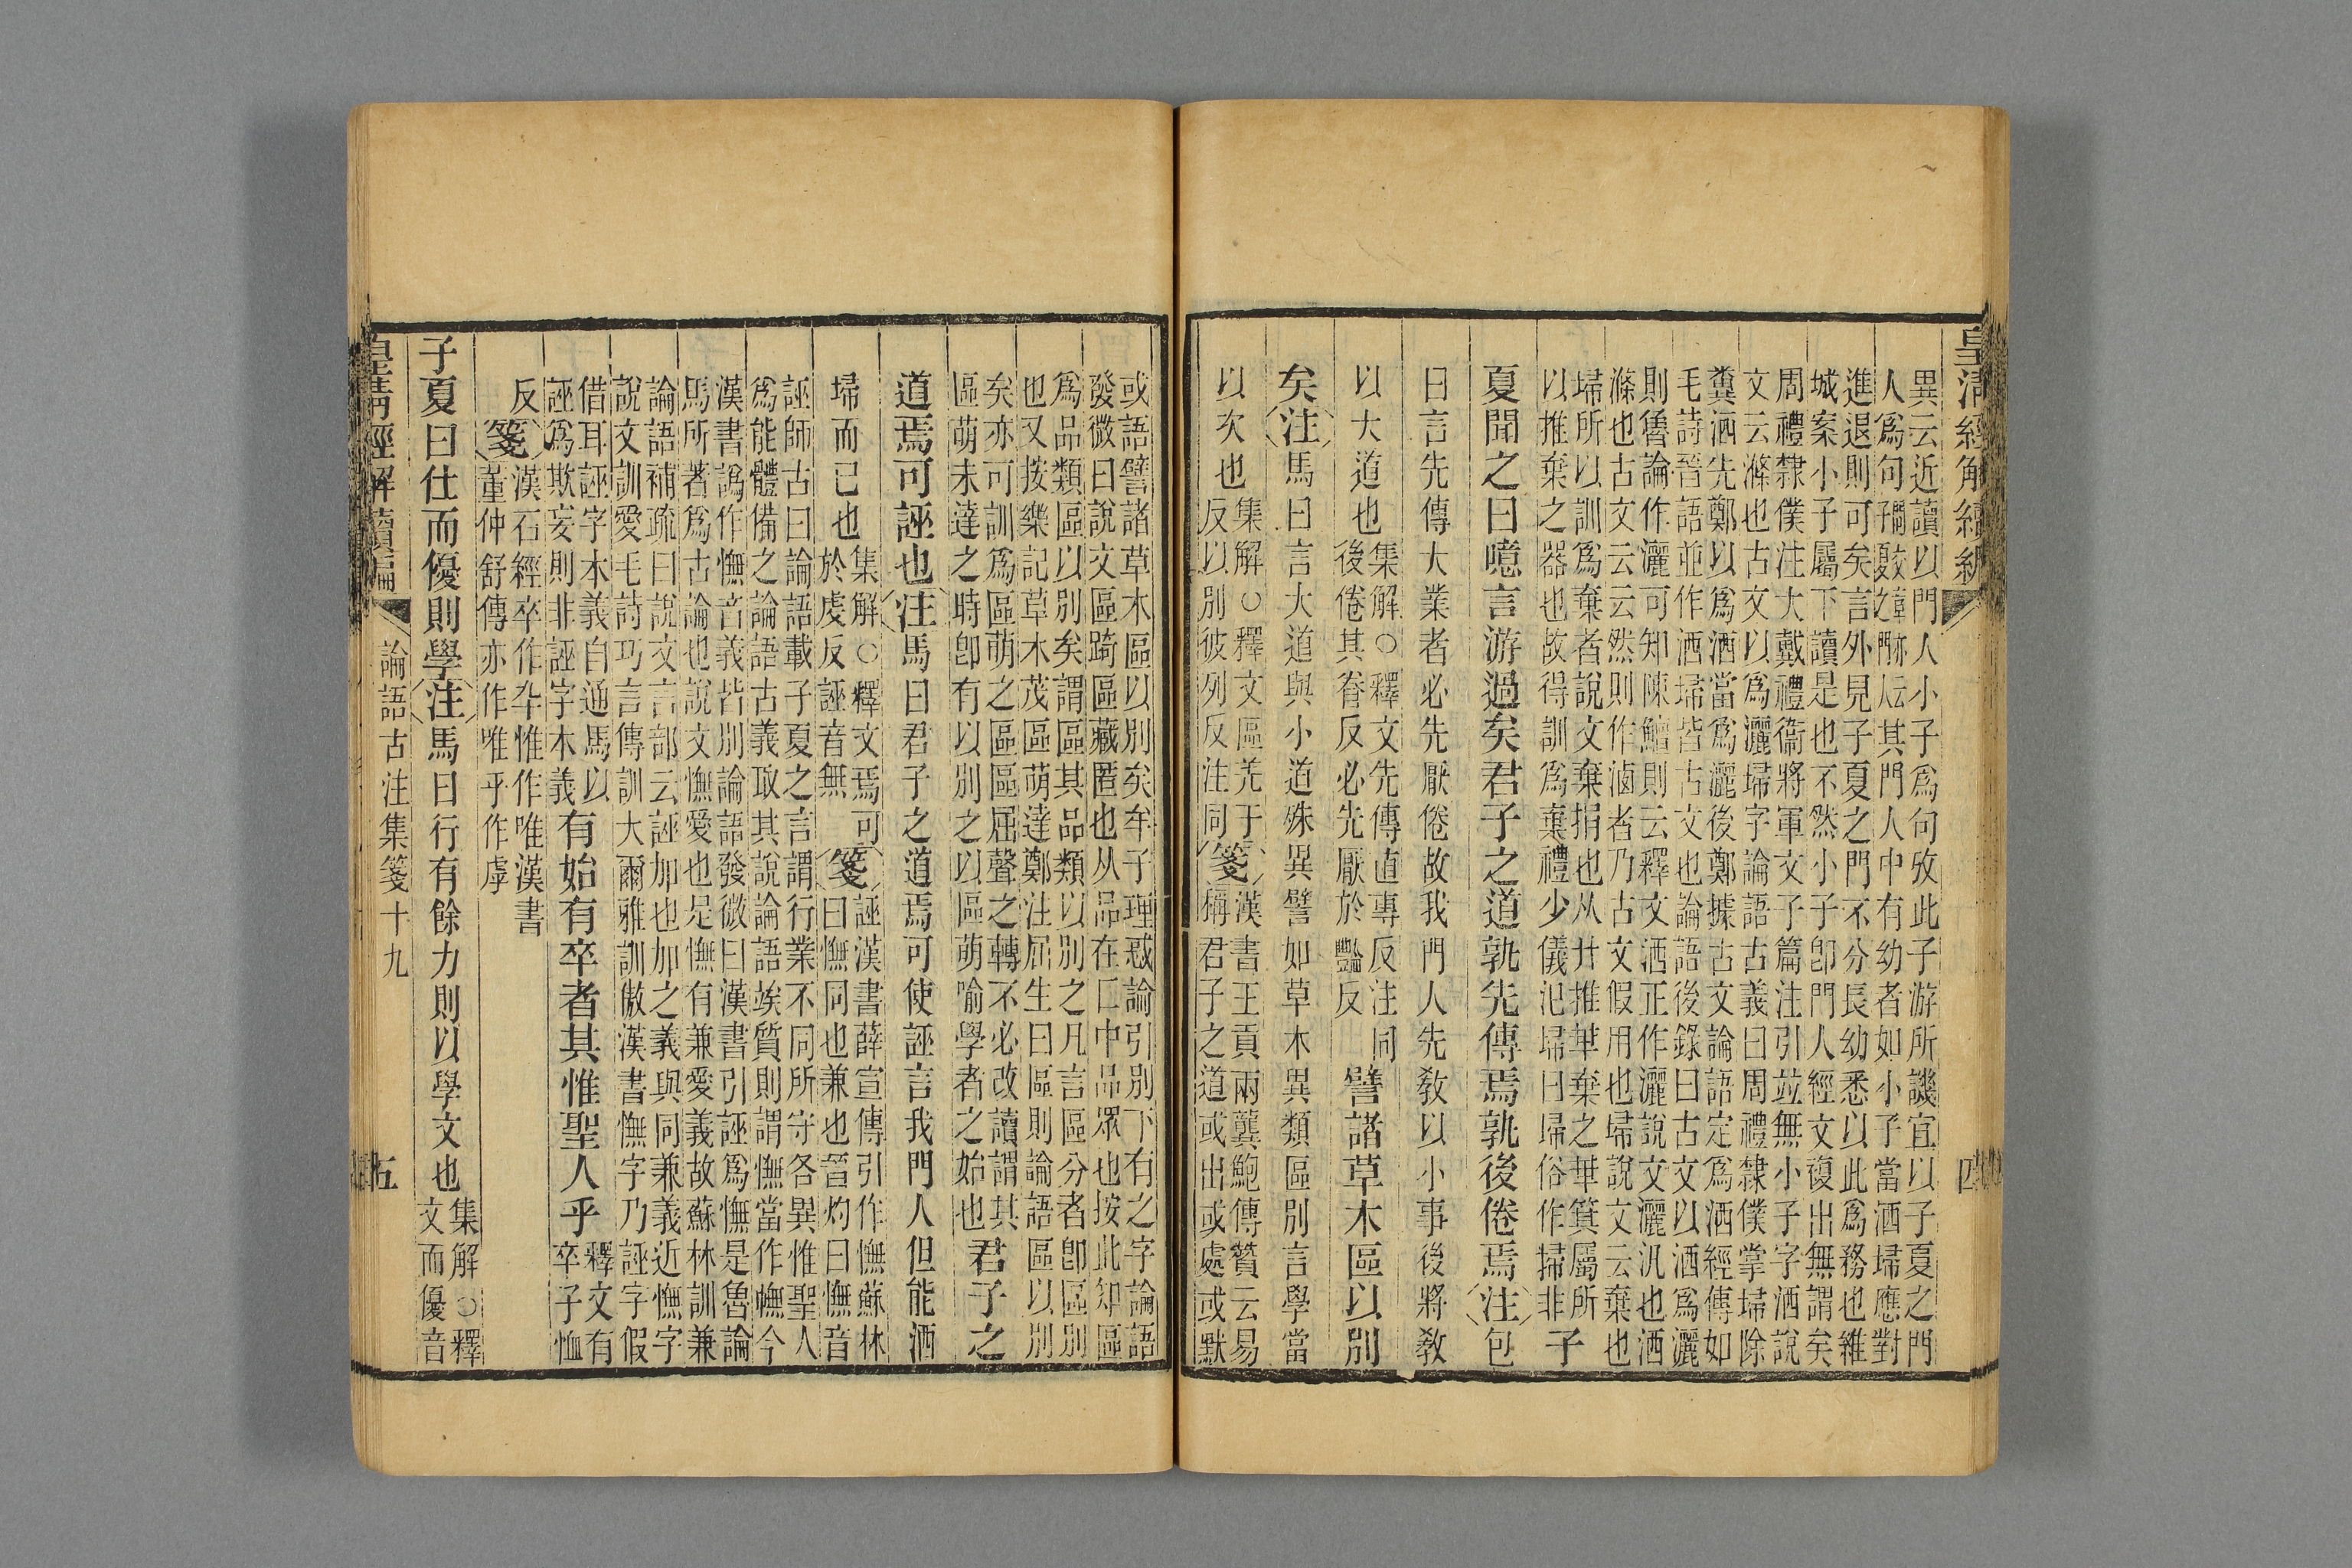 皇清經解續編
四
異云近讀以門人小子爲句攷此子游所譏宜以子夏之門
人爲句其門人中有幼者如小子當洒埽應對
進退則可矣言外見子夏之門不分長幼悉以此爲務也雒
城案小子屬下讀是也不然小子卽門人經文複出無謂矣
周禮隸僕注大戴禮衞將軍文子篇注引竝無小子字洒說
文云滌也古文以爲灑埽字論語古義曰周禮隸僕掌埽除
糞洒先鄭以爲洒當爲灑後鄭據古文論語定爲洒經傳如
毛詩晉語並作洒埽皆古文也論語後錄曰古文以洒爲灑
則魯論作灑可知陳鱣則云釋文洒正作灑說文灑汎也洒
滌也古文云云然則作滷者乃古文假用也埽說文云棄也
埽所以訓爲棄者說文棄捐也从廾推𠦒棄之𠦒箕屬所
以推棄之器也故得訓爲棄禮少儀汜埽曰埽俗作掃非
子
夏聞之曰噫言游過矣君子之道孰先傳焉孰後倦焉注包
曰言先傳大業者必先厭倦故我門人先敎以小事後將敎
以大道也
集解○釋文先傳直專反注同
後倦其眷反必先厭於豔反
譬諸草木區以別
矣注馬曰言大道與小道殊異譬如草木異類區別言學當
以次也
集解○釋文區羌于
反以別彼列反注同
箋
漢書王貢兩龔鮑傳贊云易
稱君子之道或出或處或默
或語譬諸草木區以別矣牟子理惑論引別下有之字論語
發微曰說文區踦區藏匿也从品在匸中品眾也按此知區
爲品類區以別矣謂區其品類以別之凡言區分者卽區別
也又按樂記草木茂區萌達鄭注屈生曰區則論語區以別
矣亦可訓爲區萌之區區屈聲之轉不必改讀謂其
區萌未達之時卽有以別之以區萌喻學者之始也
君子之
道焉可誣也注馬曰君子之道焉可使誣言我門人但能洒
埽而已也
集解○釋文焉可
於虔反誣音無
箋
誣漢書薛宣傳引作憮蘇林
曰憮同也兼也晉灼曰憮音
誣師古曰論語載子夏之言謂行業不同所守各異惟聖人
爲能體備之論語古義取其說論語竢質則謂憮當作幠今
漢書譌作憮音義皆別論語發微曰漢書引誣爲憮是魯論
馬所著爲古論也說文憮愛也是憮有兼愛義故蘇林訓兼
論語補疏曰說文言部云誣加也加之義與同兼義近憮字
說文訓愛毛詩巧言傳訓大爾雅訓傲漢書憮字乃誣字假
借耳誣字本義自通馬以
誣爲欺妄則非誣字本義
有始有卒者其惟聖人乎
釋文有
卒子恤
反
箋
漢石經卒作卒惟作唯漢書
董仲舒傳亦作唯乎作虖
子夏曰仕而優則學注馬曰行有餘力則以學文也
集解○釋
文而優音
皇淸經解續編
論語古注集箋十九
五